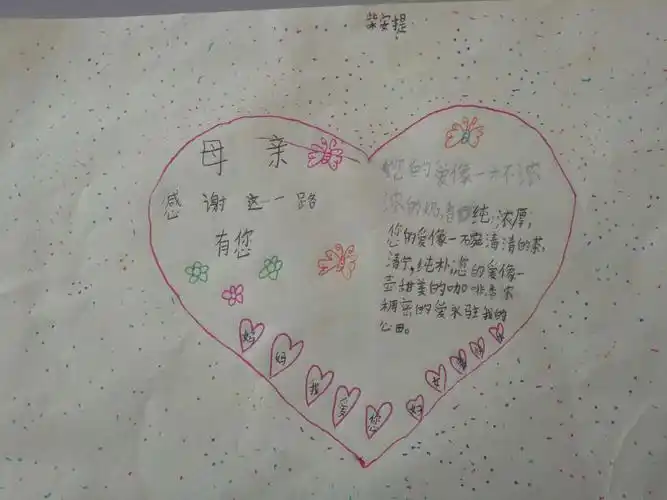 柴安提
母亲
感谢这一路
有您
您的爱像一杯浓
浓的奶香纯,浓厚,
您的爱像一杯清清的茶,
清宁,纯朴,您的爱像一
壶甜美的咖啡香浓
稠密的爱永驻我的
心田。
妈
妈
我
爱
您
妈